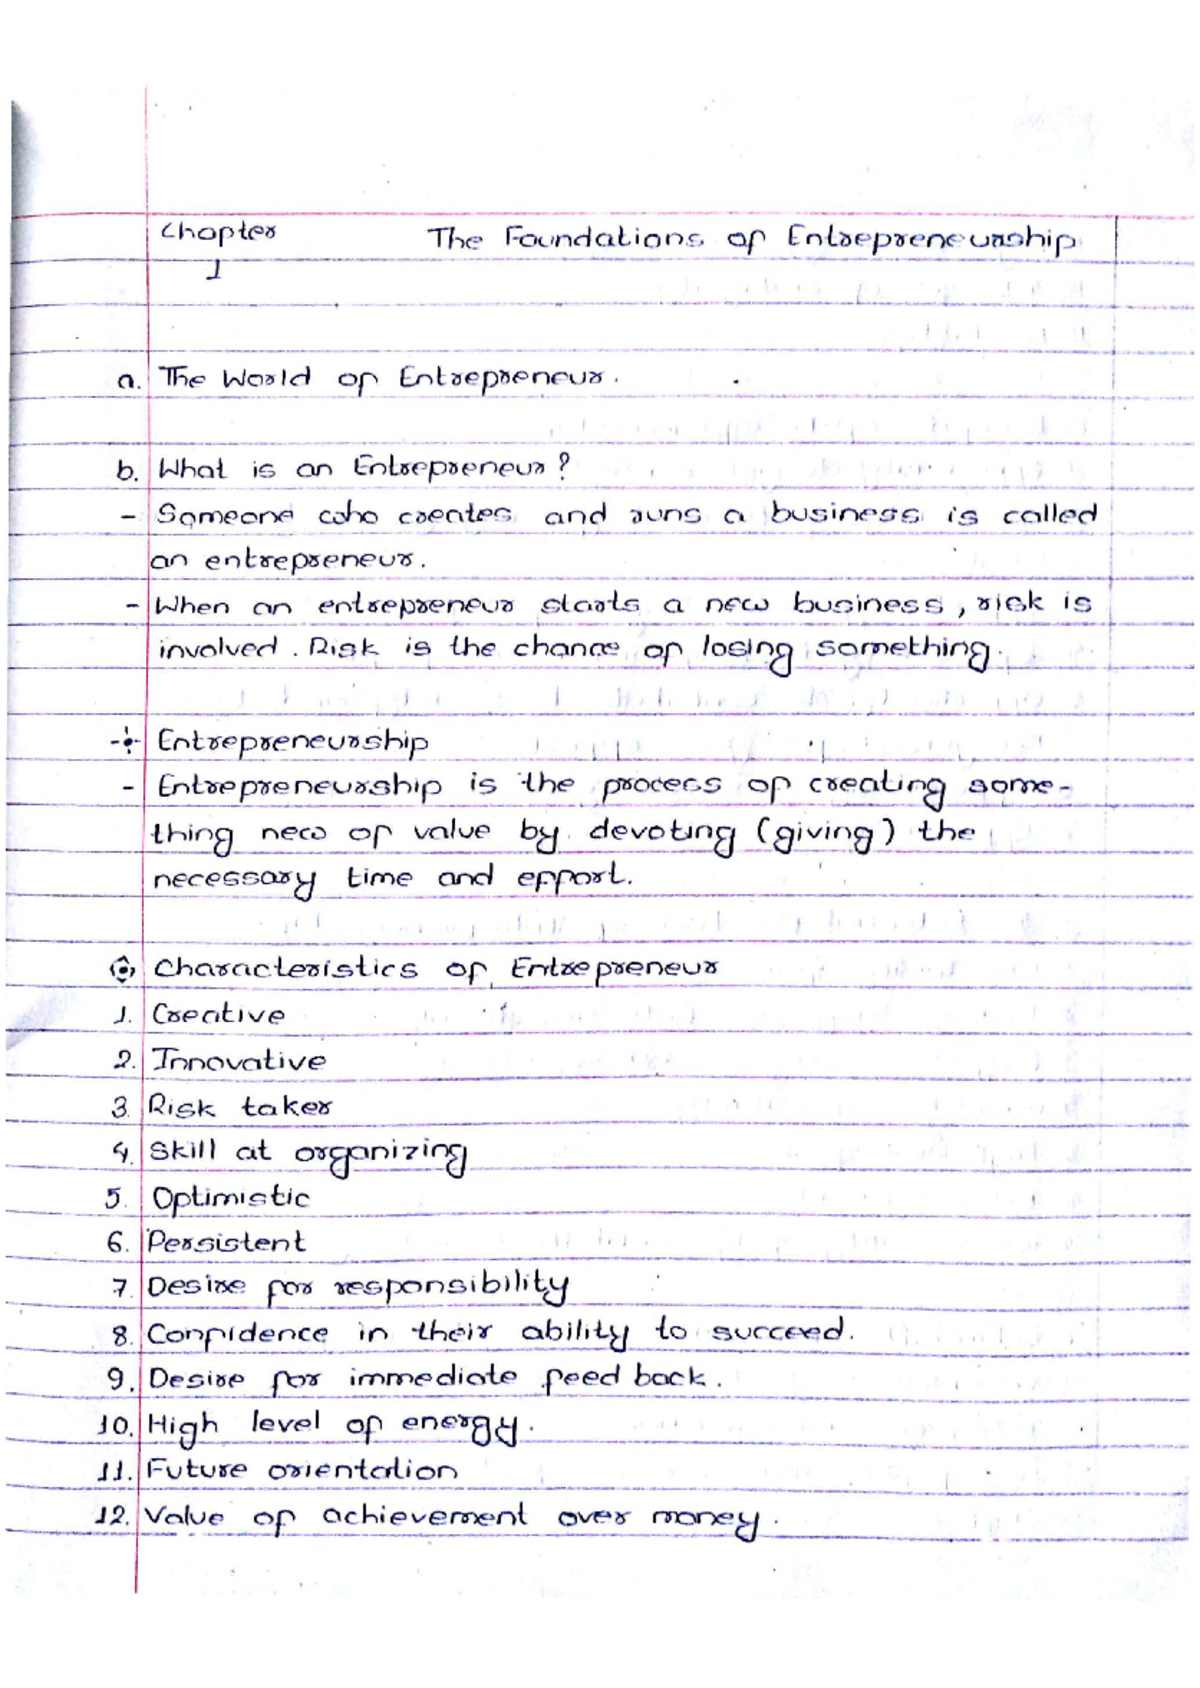 Chapter The Foundations of Entrepreneurship
1
a. The World of Entrepreneur.
b. What is an Entrepreneur?
- Someone who creates and runs a business is called
an entrepreneur.
- When an entrepreneur starts a new business, risk is
involved. Risk is the chance of losing something.
Entrepreneurship
- Entrepreneurship is the process of creating some-
thing new of value by devoting (giving) the
necessary time and effort.
Characteristics of Entrepreneur
1. Creative
2. Innovative
3. Risk taker
4. Skill at organizing
5. Optimistic
6. Persistent
7. Desire for responsibility
8. Confidence in their ability to succeed.
9. Desire for immediate feed back.
10. High level of energy.
11. Future orientation
12. Value of achievement over money.